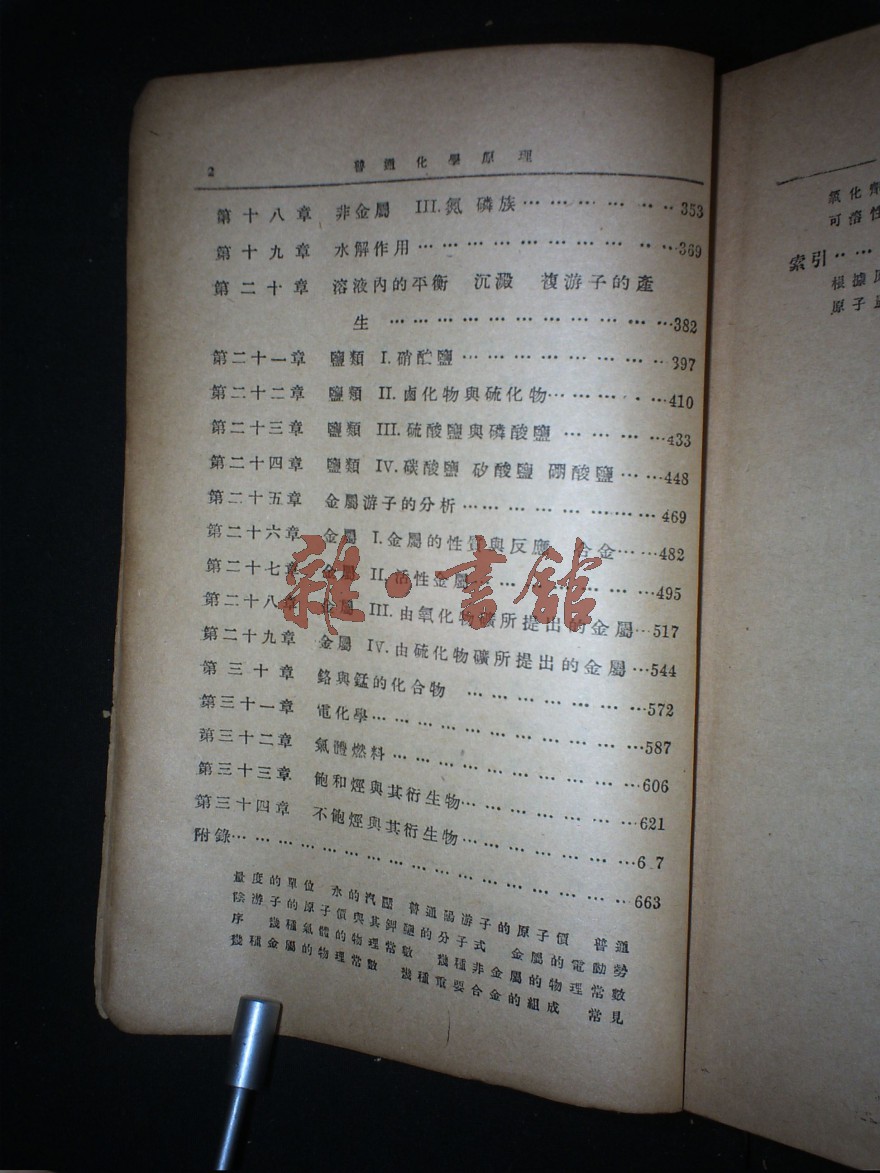 2 普通化學原理
第十八章 非金屬 III.氮 磷族………………353
第十九章 水解作用……………………………369
第二十章 溶液內的平衡 沉澱 複游子的產
生 ……………………………………382
第二十一章 鹽類 I.硝酸鹽…………………………397
第二十二章 鹽類 II.鹵化物與硫化物……………410
第二十三章 鹽類 III.硫酸鹽與磷酸鹽 …………433
第二十四章 鹽類 IV.碳酸鹽 矽酸鹽 硼酸鹽 ……448
第二十五章 金屬游子的分析………………………469
第二十六章 金屬 I.金屬的性質與反應 合金……482
第二十七章 金屬 II.活性金屬……………………495
第二十八章 金屬 III.由氧化物礦所提出的金屬…517
第二十九章 金屬 IV.由硫化物礦所提出的金屬…544
第三十章 鉻與錳的化合物 ……………………572
第三十一章 電化學…………………………………587
第三十二章 氣體燃料………………………………606
第三十三章 飽和烴與其衍生物……………………621
第三十四章 不飽烴與其衍生物……………………6 7
附錄……………………………………………………663
量度的單位 水的汽壓 普通陽游子的原子價 普通
陰游子的原子價與其鉀鹽的分子式 金屬的電動勢
序 幾種氣體的物理常數 幾種非金屬的物理常數
幾種金屬的物理常數 幾種重要合金的組成 常見
雜·書館
氧化劑
可溶性
索引……
根據
原子